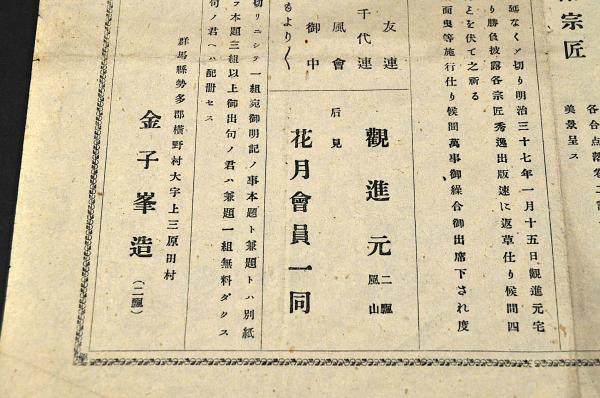 宗匠
各合点落巻二言
美景呈ス
延なくメ切り明治三十七年一月十五日觀進元宅
り勝負披露各宗匠秀逸出版速に返草仕り候間四
とを伏て之祈る
面曳等施行仕り候間萬事御繰合御出席下され度
友連
千代連
風會
御中
もより〱
觀進元
二飄
風山
后見
花月會員一同
切リニシテ一組宛御明記ノ事本題ト兼題トハ別紙
本題三組以上御出句ノ君ハ兼題一組無料ダクス
句ノ君ヘハ配冊セス
群馬縣勢多郡横野村大字上三原田村
金子峯造
(二飄)